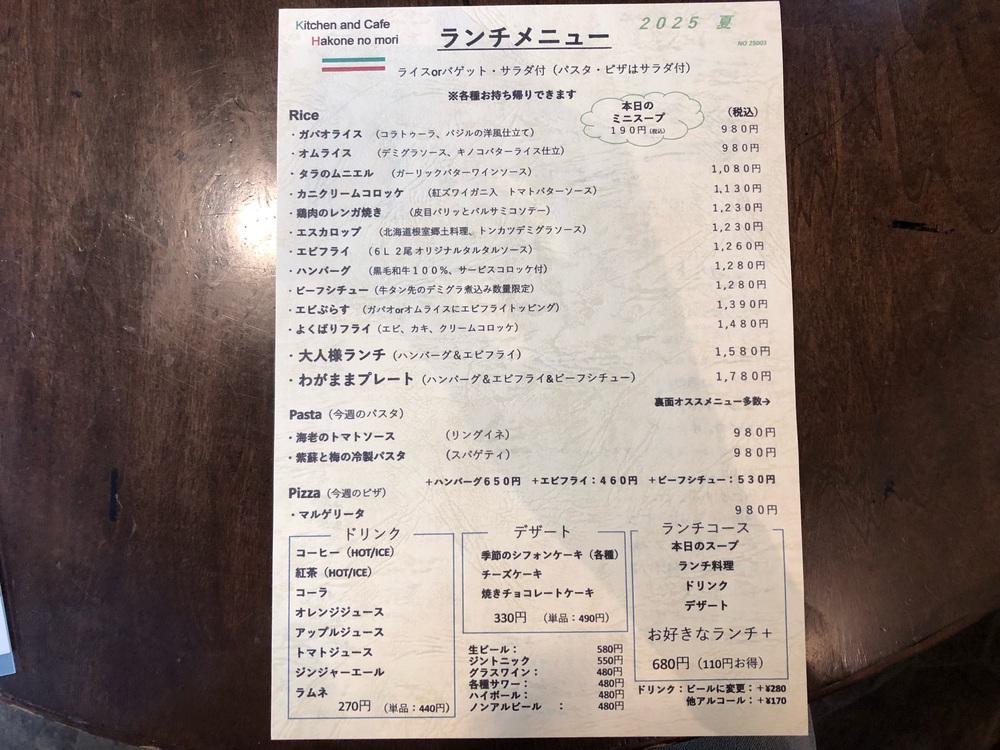 Kitchen and Cafe
Hakone no mori
ランチメニュー
2025 夏
NO 25003
ライスorバゲット・サラダ付（パスタ・ピザはサラダ付）
※各種お持ち帰りできます
本日の
ミニスープ
190円(税込)
(税込)
Rice
・ガパオライス （コラトゥーラ、バジルの洋風仕立て） 980円
・オムライス （デミグラソース、キノコバターライス仕立） 980円
・タラのムニエル （ガーリックバターワインソース） 1,080円
・カニクリームコロッケ （紅ズワイガニ入 トマトバターソース） 1,130円
・鶏肉のレンガ焼き （皮目パリッとバルサミコソテー） 1,230円
・エスカロップ （北海道根室郷土料理、トンカツデミグラソース） 1,230円
・エビフライ （６Ｌ ２尾 オリジナルタルタルソース） 1,260円
・ハンバーグ （黒毛和牛１００%、サービスコロッケ付） 1,280円
・ビーフシチュー（牛タン先のデミグラ煮込み数量限定） 1,280円
・エビぷらす （ガパオorオムライスにエビフライトッピング） 1,390円
・よくばりフライ（エビ、カキ、クリームコロッケ） 1,480円
・大人様ランチ（ハンバーグ＆エビフライ） 1,580円
・わがままプレート（ハンバーグ＆エビフライ&ビーフシチュー） 1,780円
裏面オススメニュー多数→
Pasta（今週のパスタ）
・海老のトマトソース （リングイネ） 980円
・紫蘇と梅の冷製パスタ （スパゲティ） 980円
＋ハンバーグ650円 ＋エビフライ：460円 ＋ビーフシチュー：530円
Pizza（今週のピザ）
・マルゲリータ 980円
ドリンク
コーヒー（HOT/ICE）
紅茶（HOT/ICE）
コーラ
オレンジジュース
アップルジュース
トマトジュース
ジンジャーエール
ラムネ
270円 （単品：440円）
デザート
季節のシフォンケーキ（各種）
チーズケーキ
焼きチョコレートケーキ
330円 （単品：490円）
生ビール： 580円
ジントニック 550円
グラスワイン： 480円
各種サワー： 480円
ハイボール： 480円
ノンアルビール ： 480円
ランチコース
本日のスープ
ランチ料理
ドリンク
デザート
お好きなランチ＋
680円（110円お得）
ドリンク：ビールに変更：＋¥280
他アルコール：＋¥170